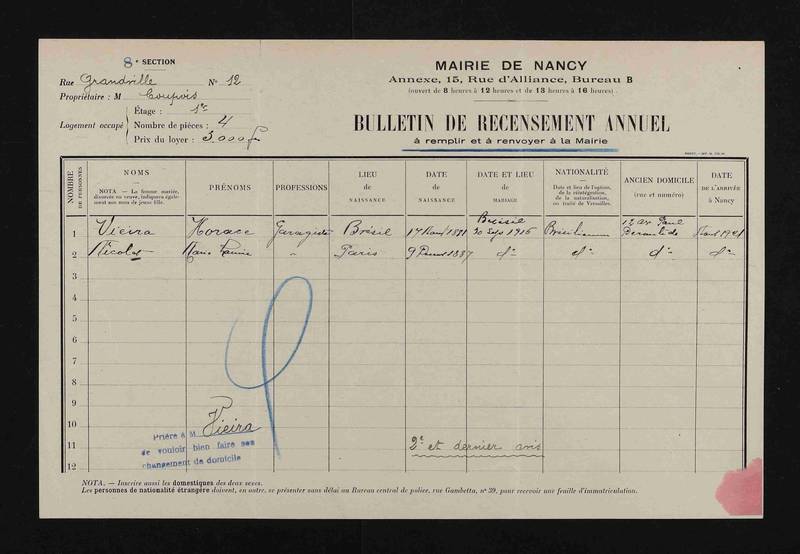 8e SECTION
Rue Grandville N° 12
Propriétaire : M Coupois
Étage : 1er
Logement occupé
Nombre de pièces : 4
Prix du loyer : 3.000 f
MAIRIE DE NANCY
Annexe, 15, Rue d'Alliance, Bureau B
(ouvert de 8 heures à 12 heures et de 13 heures à 16 heures)
BULLETIN DE RECENSEMENT ANNUEL
à remplir et à renvoyer à la Mairie
NOMBRE DE PERSONNES
NOMS
NOTA — La femme mariée, divorcée ou veuve, indiquera également son nom de jeune fille.
PRÉNOMS
PROFESSIONS
LIEU de NAISSANCE
DATE de NAISSANCE
DATE ET LIEU de MARIAGE
NATIONALITÉ
Date et lieu de l'option, de la réintégration, de la naturalisation, ou traité de Versailles.
ANCIEN DOMICILE (rue et numéro)
DATE DE L'ARRIVÉE à Nancy
1 Vieira Horace Garagiste Brésil 17 1881 Brésil 30 Sept 1916 Brésilienne 12 av Paul Déroulède
2 Nicolas Marie " Paris 9 1887 do do do do
3
4
5
6
7
8
9
10
11
12
Prière à M. Vieira
de vouloir bien faire son
changement de domicile
2e et dernier avis
NOTA. — Inscrire aussi les domestiques des deux sexes.
Les personnes de nationalité étrangère doivent, en outre, se présenter sans délai au Bureau central de police, rue Gambetta, n° 39, pour recevoir une feuille d'immatriculation.